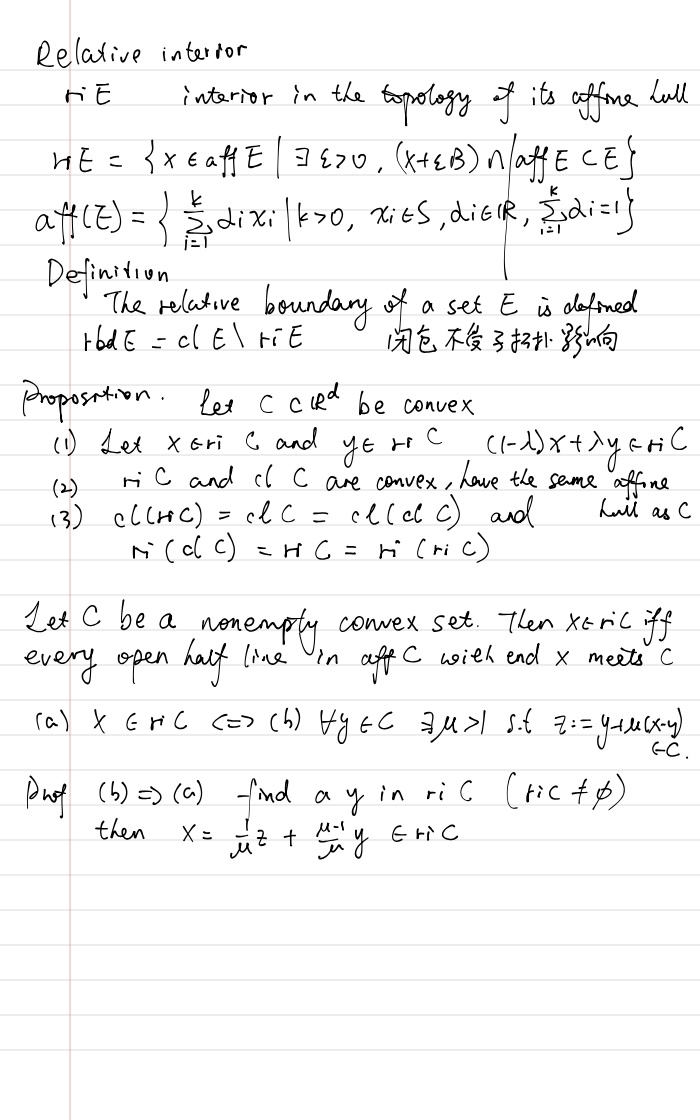 Relative interior
ri E interior in the topology of its affine hull
ri E = {x ∈ aff E | ∃ ε>0, (x+εB) ∩ aff E ⊂ E}
aff(E) = { \sum_{i=1}^{k} αi xi | k>0, xi ∈ S, αi ∈ ℝ, \sum_{i=1}^{k} αi = 1}
Definition
The relative boundary of a set E is defined
rbd E = cl E \ ri E 闭包不受子拓扑影响
Proposition. Let C ⊂ ℝ^d be convex
(1) Let x ∈ ri C and y ∈ ri C (1-λ)x + λy ∈ ri C
(2) ri C and cl C are convex, have the same affine
hull as C
(3) cl(ri C) = cl C = cl(cl C) and
ri(cl C) = ri C = ri(ri C)
Let C be a nonempty convex set. Then x ∈ ri C iff
every open half line in aff C with end x meets C
(a) x ∈ ri C <=> (b) ∀y ∈ C ∃ μ>1 s.t z := y+μ(x-y)
∈ C.
Proof (b) => (a) find a y in ri C (ri C ≠ ϕ)
then x = \frac{1}{μ} z + \frac{μ-1}{μ} y ∈ ri C